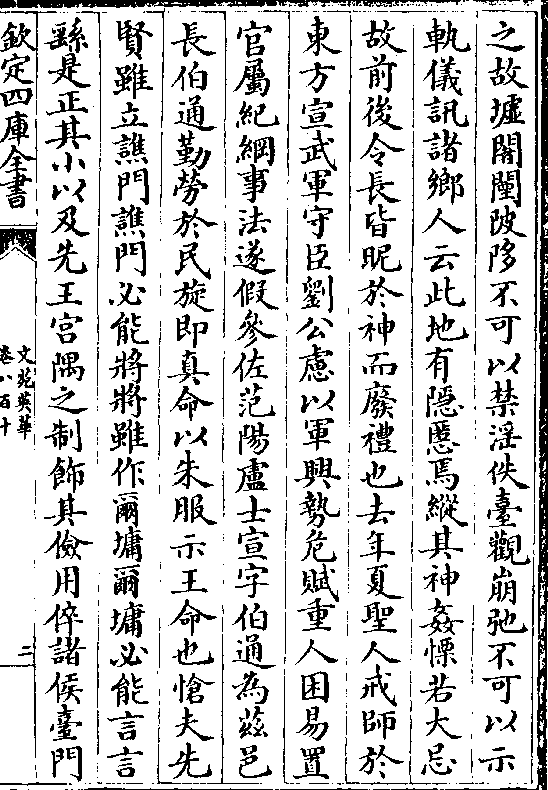 之故墟闍闉陂陊不可以禁淫佚臺觀崩弛不可以示
軌儀訊諸鄉人云此地有隱慝焉縱其神姦慄若大忌
故前後令長皆昵於神而廢禮也去年夏聖人戒師於
東方宣武軍守臣劉公慮以軍興勢危賦重人困易置
官屬紀綱事法遂假參佐范陽盧士宣字伯通為茲邑
長伯通勤勞於民旋即真命以朱服示王命也愴夫先
賢雖立譙門譙門必能將將雖作爾墉爾墉必能言言
繇是正其小以及先王宮隅之制飾其儉用倅諸侯臺門
欽定四庫全書
文苑英華
卷八百十
二